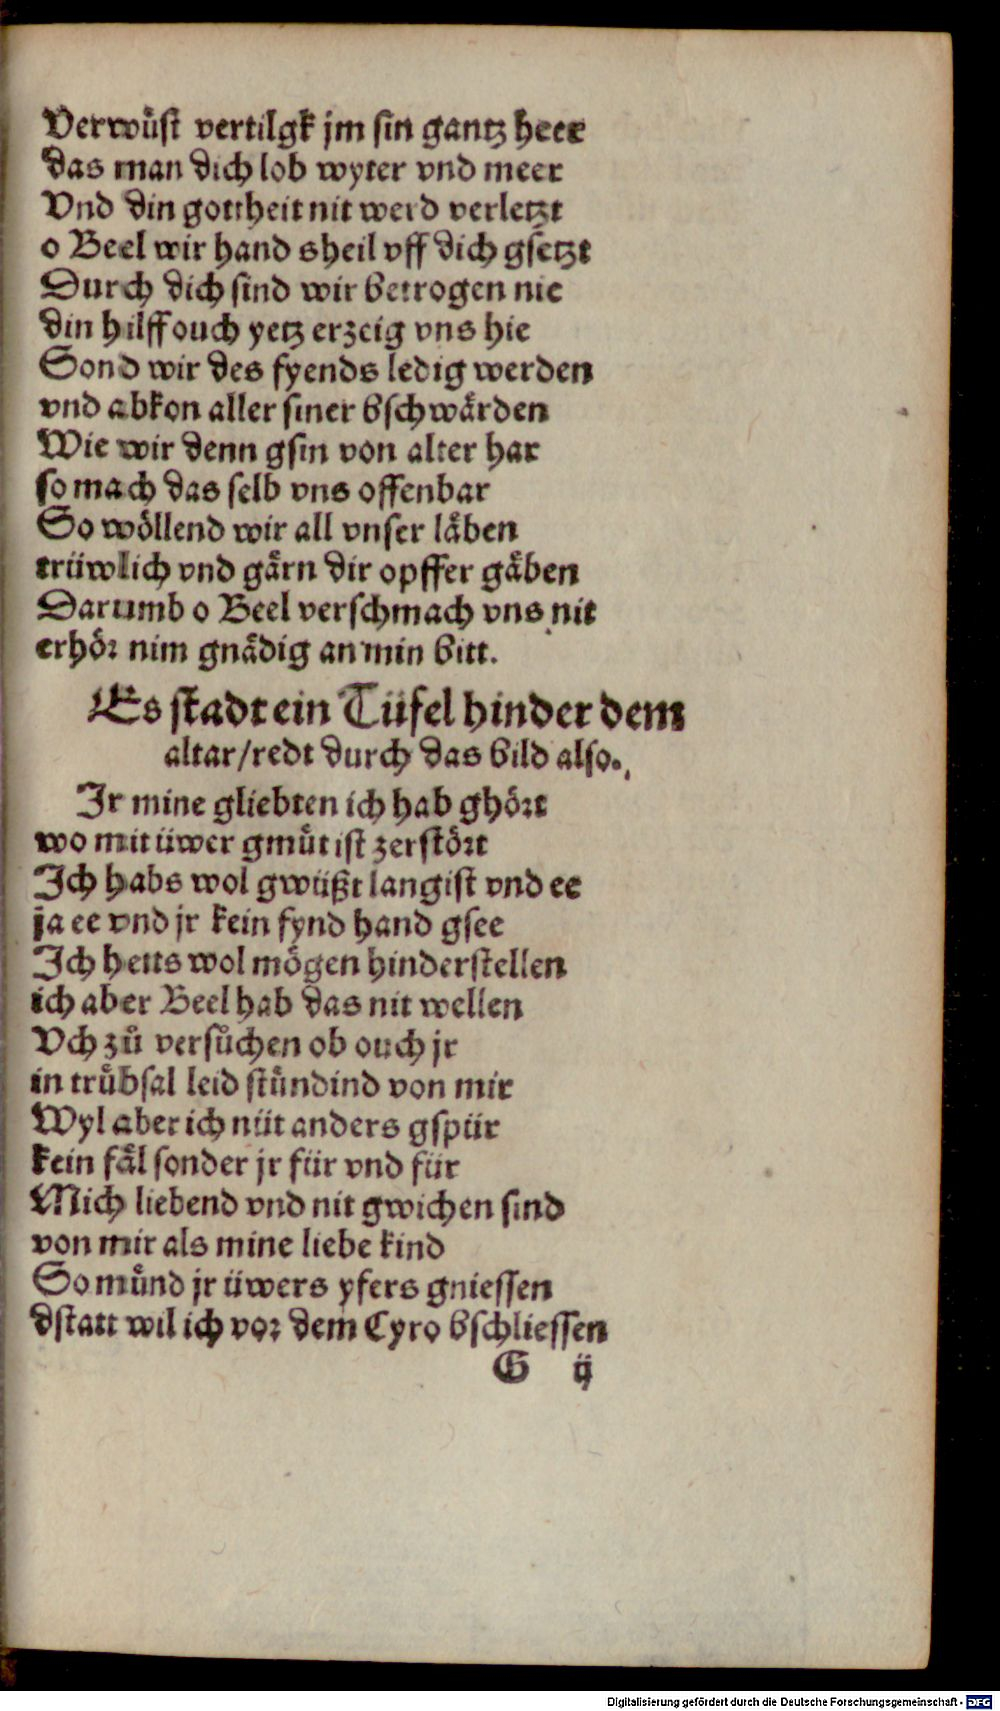 Verwuͤst vertilgk jm sin gantz heer
das man dich lob wyter vnd meer
Vnd din gottheit nit werd verletzt
o Beel wir hand sheil vff dich gsetzt
Durch dich sind wir betrogen nie
din hilff ouch yetz erzeig vns hie
Sond wir des fyends ledig werden
vnd abkon aller siner bschwaͤrden
Wie wir denn gsin von alter har
so mach das selb vns offenbar
So woͤllend wir all vnser laͤben
trüwlich vnd gaͤrn dir opffer gaͤben
Darumb o Beel verschmach vns nit
erhoͤr nim gnaͤdig an min bitt.
Es stadt ein Tüfel hinder dem
altar/redt durch das bild also.
Ir mine gliebten ich hab ghoͤrt
wo mit üwer gmuͤt ist zerstoͤrt
Ich habs wol gwüßt langist vnd ee
ja ee vnd jr kein fynd hand gsee
Ich hetts wol moͤgen hinderstellen
ich aber Beel hab das nit wellen
Vch zuͦ versuͦchen ob ouch jr
in truͤbsal leid stündind von mir
Wyl aber ich nüt anders gspür
kein faͤl sonder jr für vnd für
Mich liebend vnd nit gwichen sind
von mir als mine liebe kind
So muͤnd jr üwers yfers gniessen
dstatt wil ich vor dem Cyro bschliessen
G ij
Digitalisierung gefördert durch die Deutsche Forschungsgemeinschaft - DFG